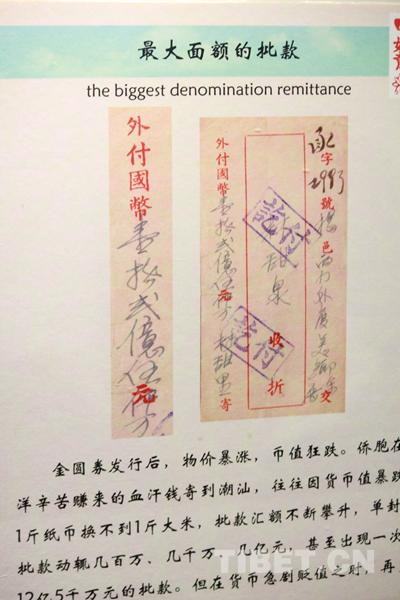 最大面额的批款
the biggest denomination remittance
外付國幣壹拾弍億伍仟万元
外付國幣壹拾弍億伍仟万元 林甜里寄
訖付
甜泉 收折
訖付
字2993號
邑
外
美
交
金圆券发行后，物价暴涨，币值狂跌。侨胞在
洋辛苦赚来的血汗钱寄到潮汕，往往因货币值暴跌
1斤纸币换不到1斤大米，批款汇额不断攀升，单封
批款动辄几百万、几千万、几亿元，甚至出现一次
12亿5千万元的批款。但在货币急剧贬值之时，再
TIBET.CN